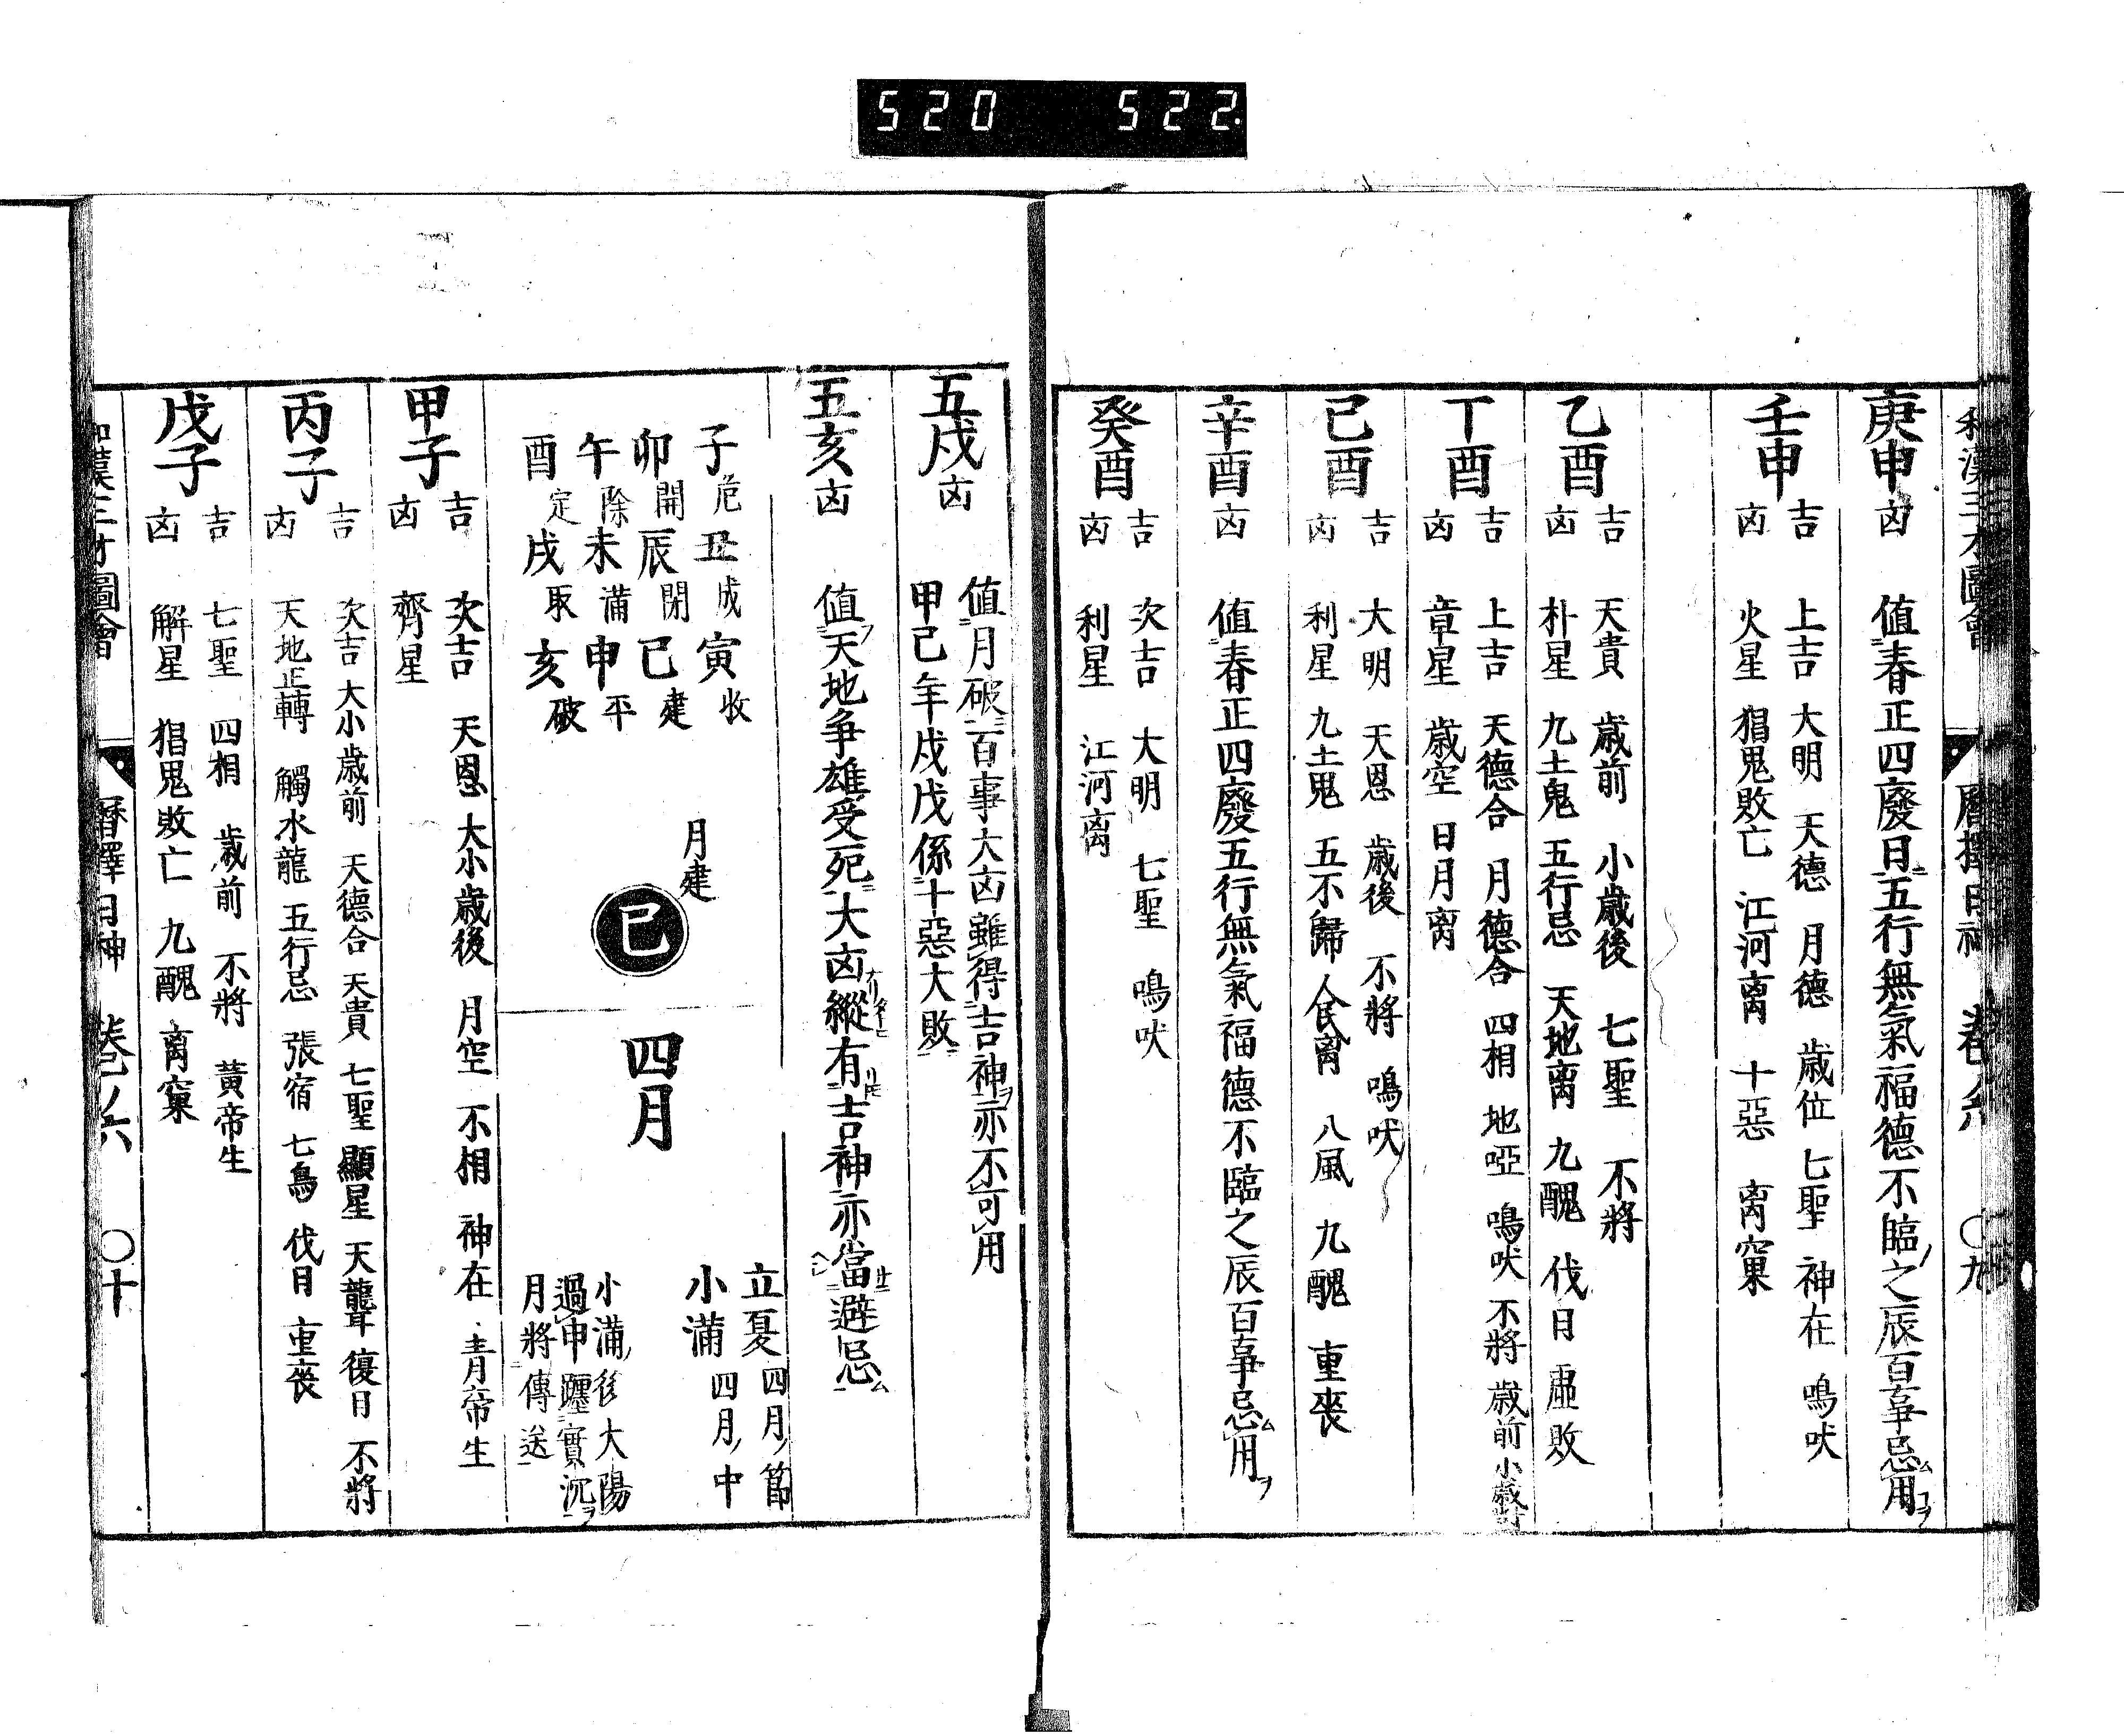 520 522
和漢三才圖會 曆擇日神 卷ノ六 〇九
庚申 凶 値春正四廢日五行無氣福德不臨之辰百事忌用
壬申
吉 上吉 大明 天德 月德 歳位 七聖 神在 鳴吠
凶 火星 猖鬼敗亡 江河离 十惡 离窠
乙酉
吉 天貴 歳前 小歳後 七聖 不將
凶 朴星 九土鬼 五行忌 天地离 九醜 伐日 虛敗
丁酉
吉 上吉 天德合 月德合 四相 地啞 鳴吠 不將 歳前小歳對
凶 章星 歳空 日月离
己酉
吉 大明 天恩 歳後 不將 鳴吠
凶 利星 九土鬼 五不歸 人民离 八風 九醜 重喪
辛酉 凶 値春正四廢五行無氣福德不臨之辰百事忌用
癸酉
吉 次吉 大明 七聖 鳴吠
凶 利星 江河离
五戌 凶 値月破百事大凶雖得吉神亦不可用
甲己年戌戊係十惡大敗
五亥 凶 値天地争雄受死大凶縱有吉神亦當避忌
子危 丑成 寅收
卯開 辰閉 巳建
午除 未滿 申平
酉定 戌取 亥破
月建
巳
四月
立夏 四月節
小滿 四月中
小滿後大陽
過申躔實沉
月將傳送
甲子
吉 次吉 天恩 大小歳後 月空 不相 神在 青帝生
凶 齊星
丙子
吉 次吉 大小歳前 天德合 天貴 七聖 顯星 天聾 復日 不將
凶 天地正轉 觸水龍 五行忌 張宿 七鳥 伐日 重喪
戊子
吉 七聖 四相 歳前 不將 黃帝生
凶 解星 猖鬼敗亡 九醜 离窠
和漢三才圖會 曆擇日神 卷ノ六 〇十